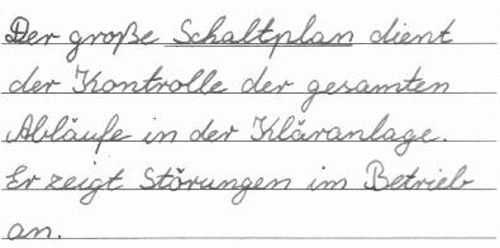 Der große Schaltplan dient
der Kontrolle der gesamten
Abläufe in der Kläranlage.
Er zeigt Störungen im Betrieb
an.